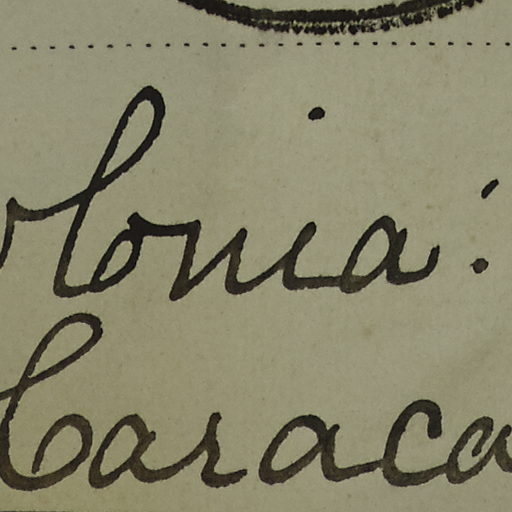 olonia:
Caraca